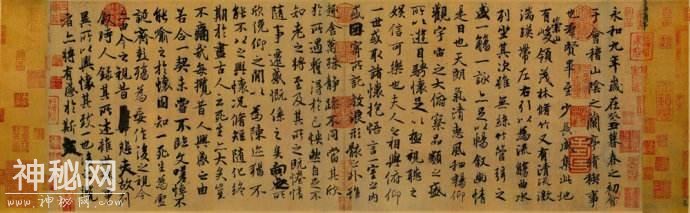 永和九年歲在癸丑暮春之初會
于會稽山陰之蘭亭脩禊事
也羣賢畢至少長咸集此地
有崇山峻領茂林脩竹又有清流激
湍暎帶左右引以為流觴曲水
列坐其次雖無絲竹管弦之
盛一觴一詠亦足以暢敘幽情
是日也天朗氣清惠風和暢仰
觀宇宙之大俯察品類之盛
所以遊目騁懷足以極視聽之
娛信可樂也夫人之相與俯仰
一世或取諸懷抱悟言一室之內
或因寄所託放浪形骸之外雖
趣舍萬殊靜躁不同當其欣
於所遇暫得於己怏然自足不
知老之將至及其所之既惓情
隨事遷感慨係之矣向之所
欣俛仰之閒以為陳迹猶不
能不以之興懷況脩短隨化終
期於盡古人云死生亦大矣豈
不痛哉每攬昔人興感之由
若合一契未嘗不臨文嗟悼不
能喻之於懷固知一死生為虛
誕齊彭殤為妄作後之視今
亦由今之視昔悲夫故列
敘時人錄其所述雖世殊事
異所以興懷其致一也後之攬
者亦將有感於斯文
神秘网
WWW.神秘网.COM